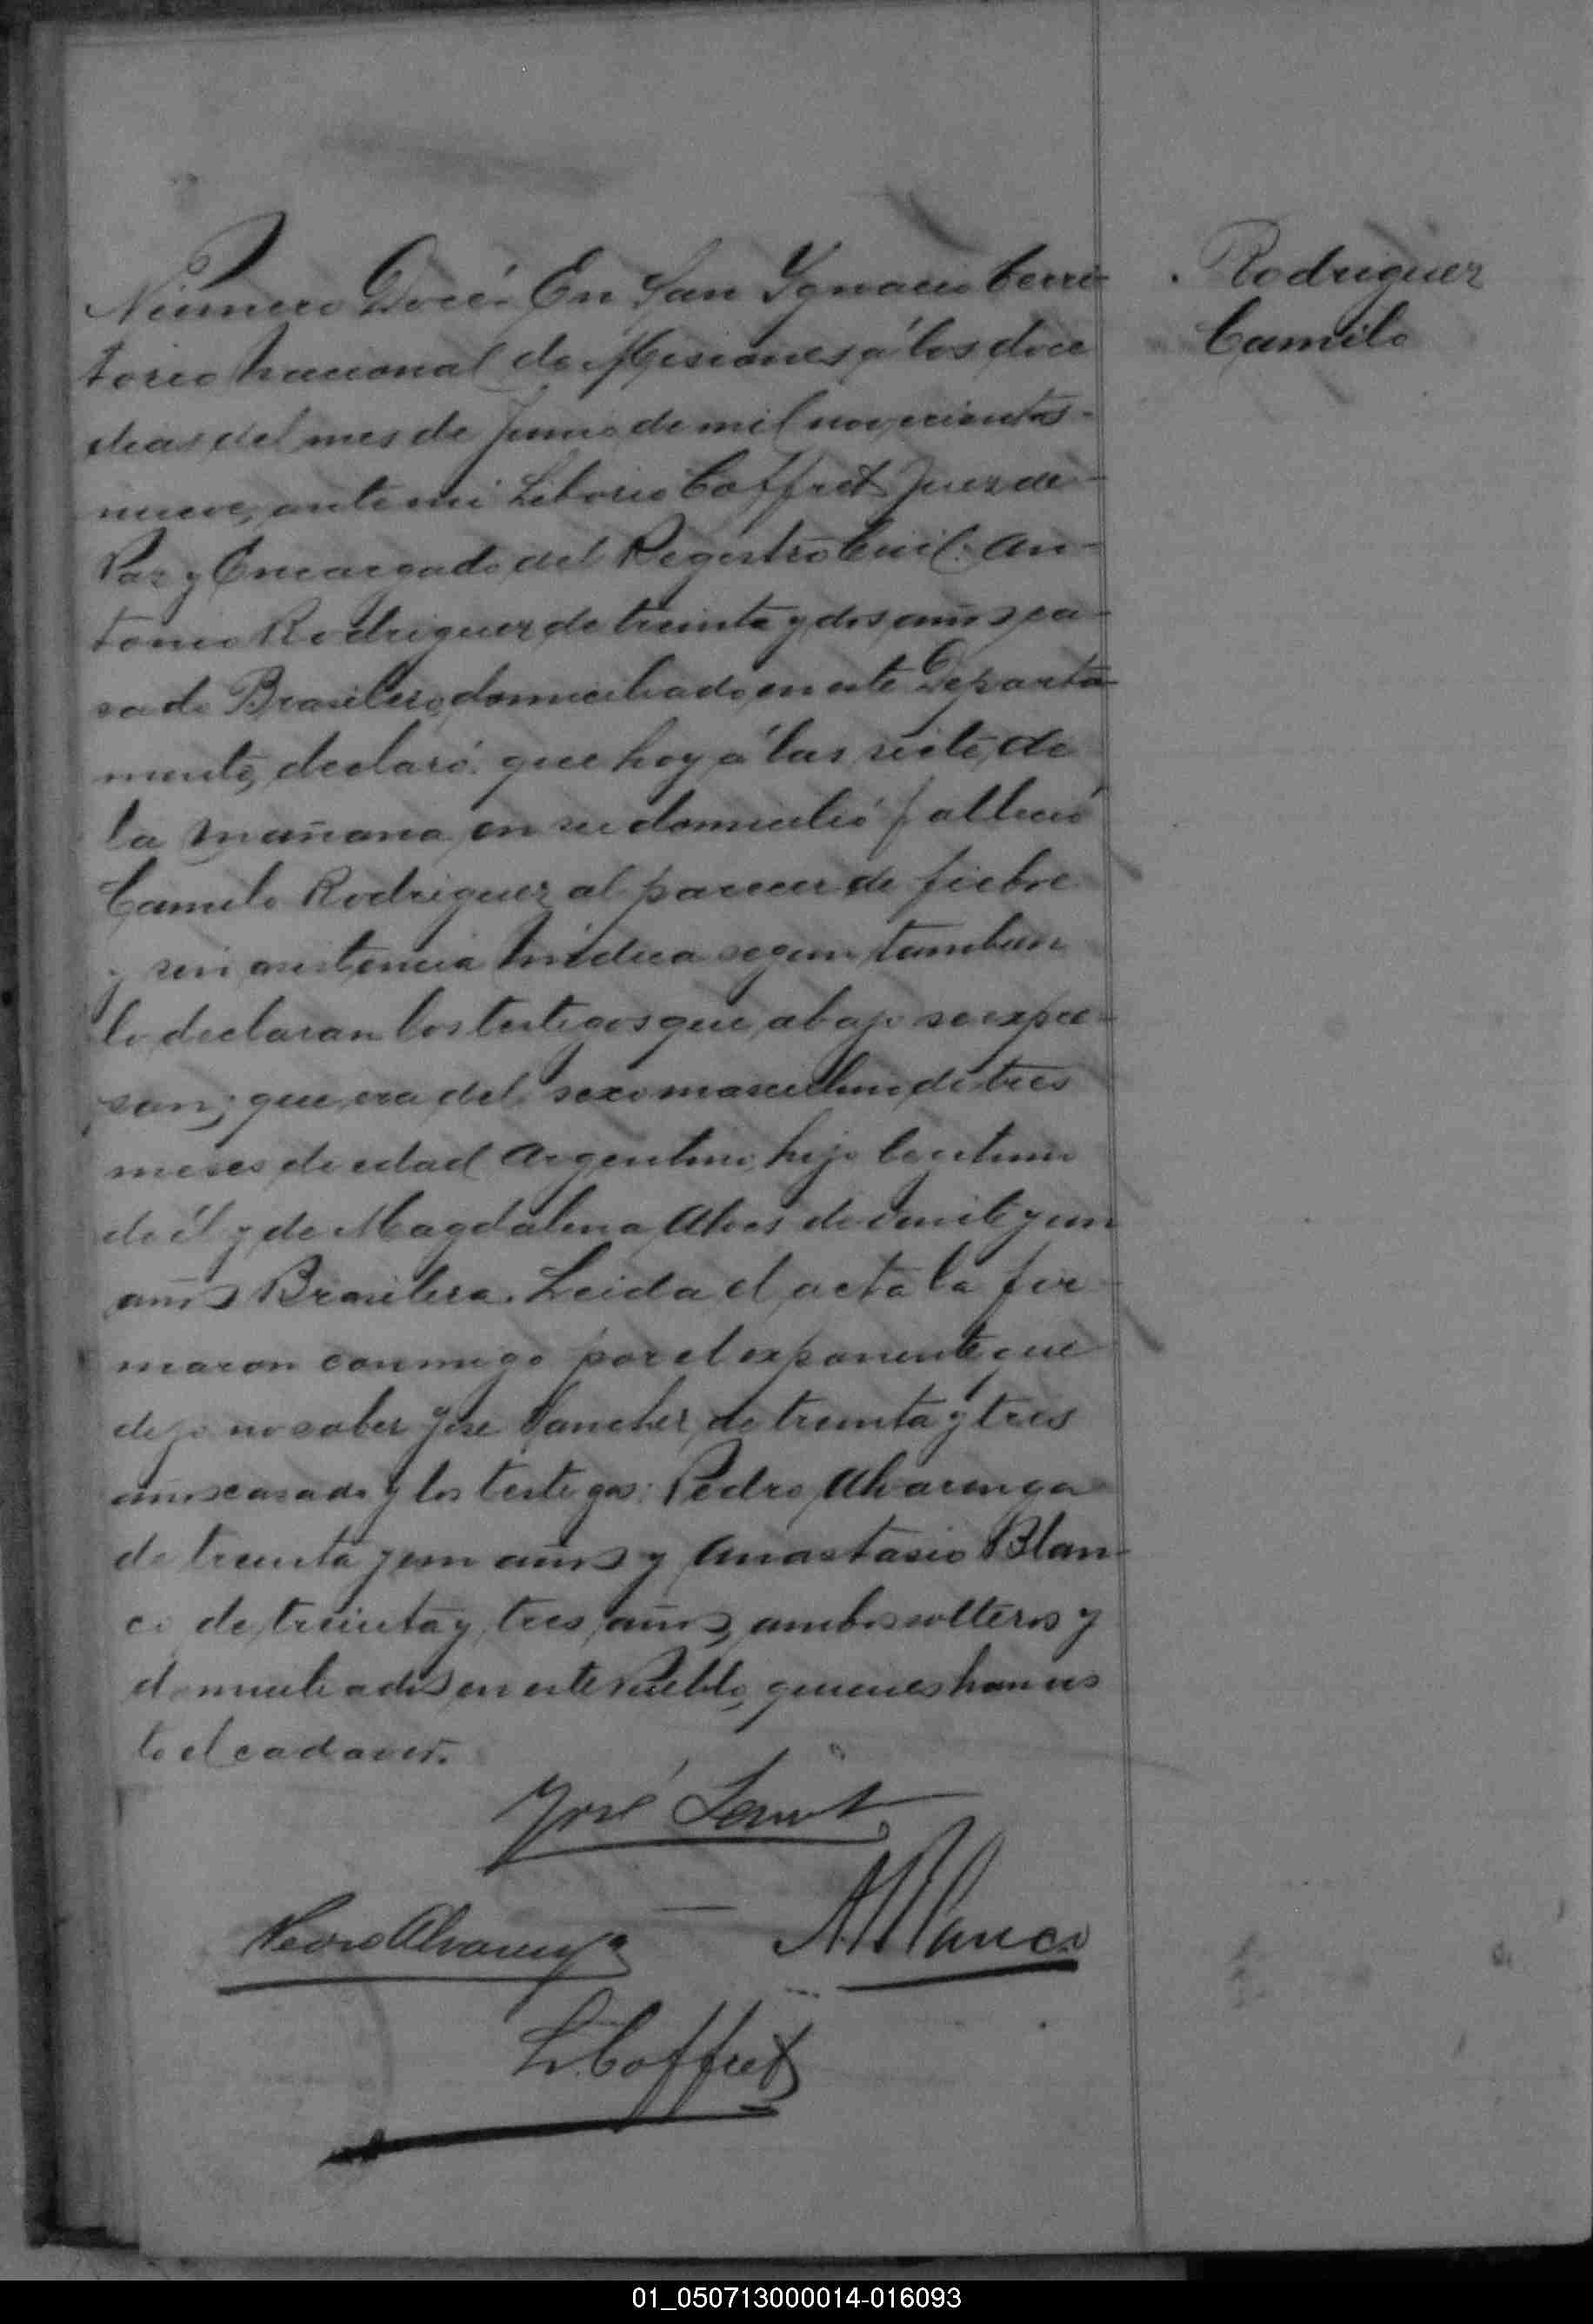 Rodriguez
Camilo
Número Doce. En San Ygnacio Terri-
torio Nacional de Misiones á los doce
dias del mes de Junio de mil novecientos
nueve, ante mi Liborio Coffret Juez de
Paz y Encargado del Registro Civil: An-
tonio Rodriguez de treinta y dos años ca-
sado Brasilero, domiciliado en este Departa-
mento, declaró: que hoy á las siete de
la mañana en su domicilió falleció
Camilo Rodriguez al parecer de fiebre
y sin asistencia Médica segun tambien
lo declaran los testigos que abajo se expre-
san; que era del sexo masculino de tres
meses de edad Argentino, hijo legitimo
de él y de Magdalena Alves de veinte y un
años Brasilera. Leida el acta la fir-
maron conmigo por el exponente que
dijo no saber José de treinta y tres
años casado y los testigos: Pedro Alvarenga
de treinta y un años y Anastasio Blan-
co de treinta y tres años, ambos solteros y
domiciliados en este Pueblo, quienes han vis
to el cadaver.
José
Pedro Alvarenga
A Blanco
L. Coffret
01_050713000014-016093